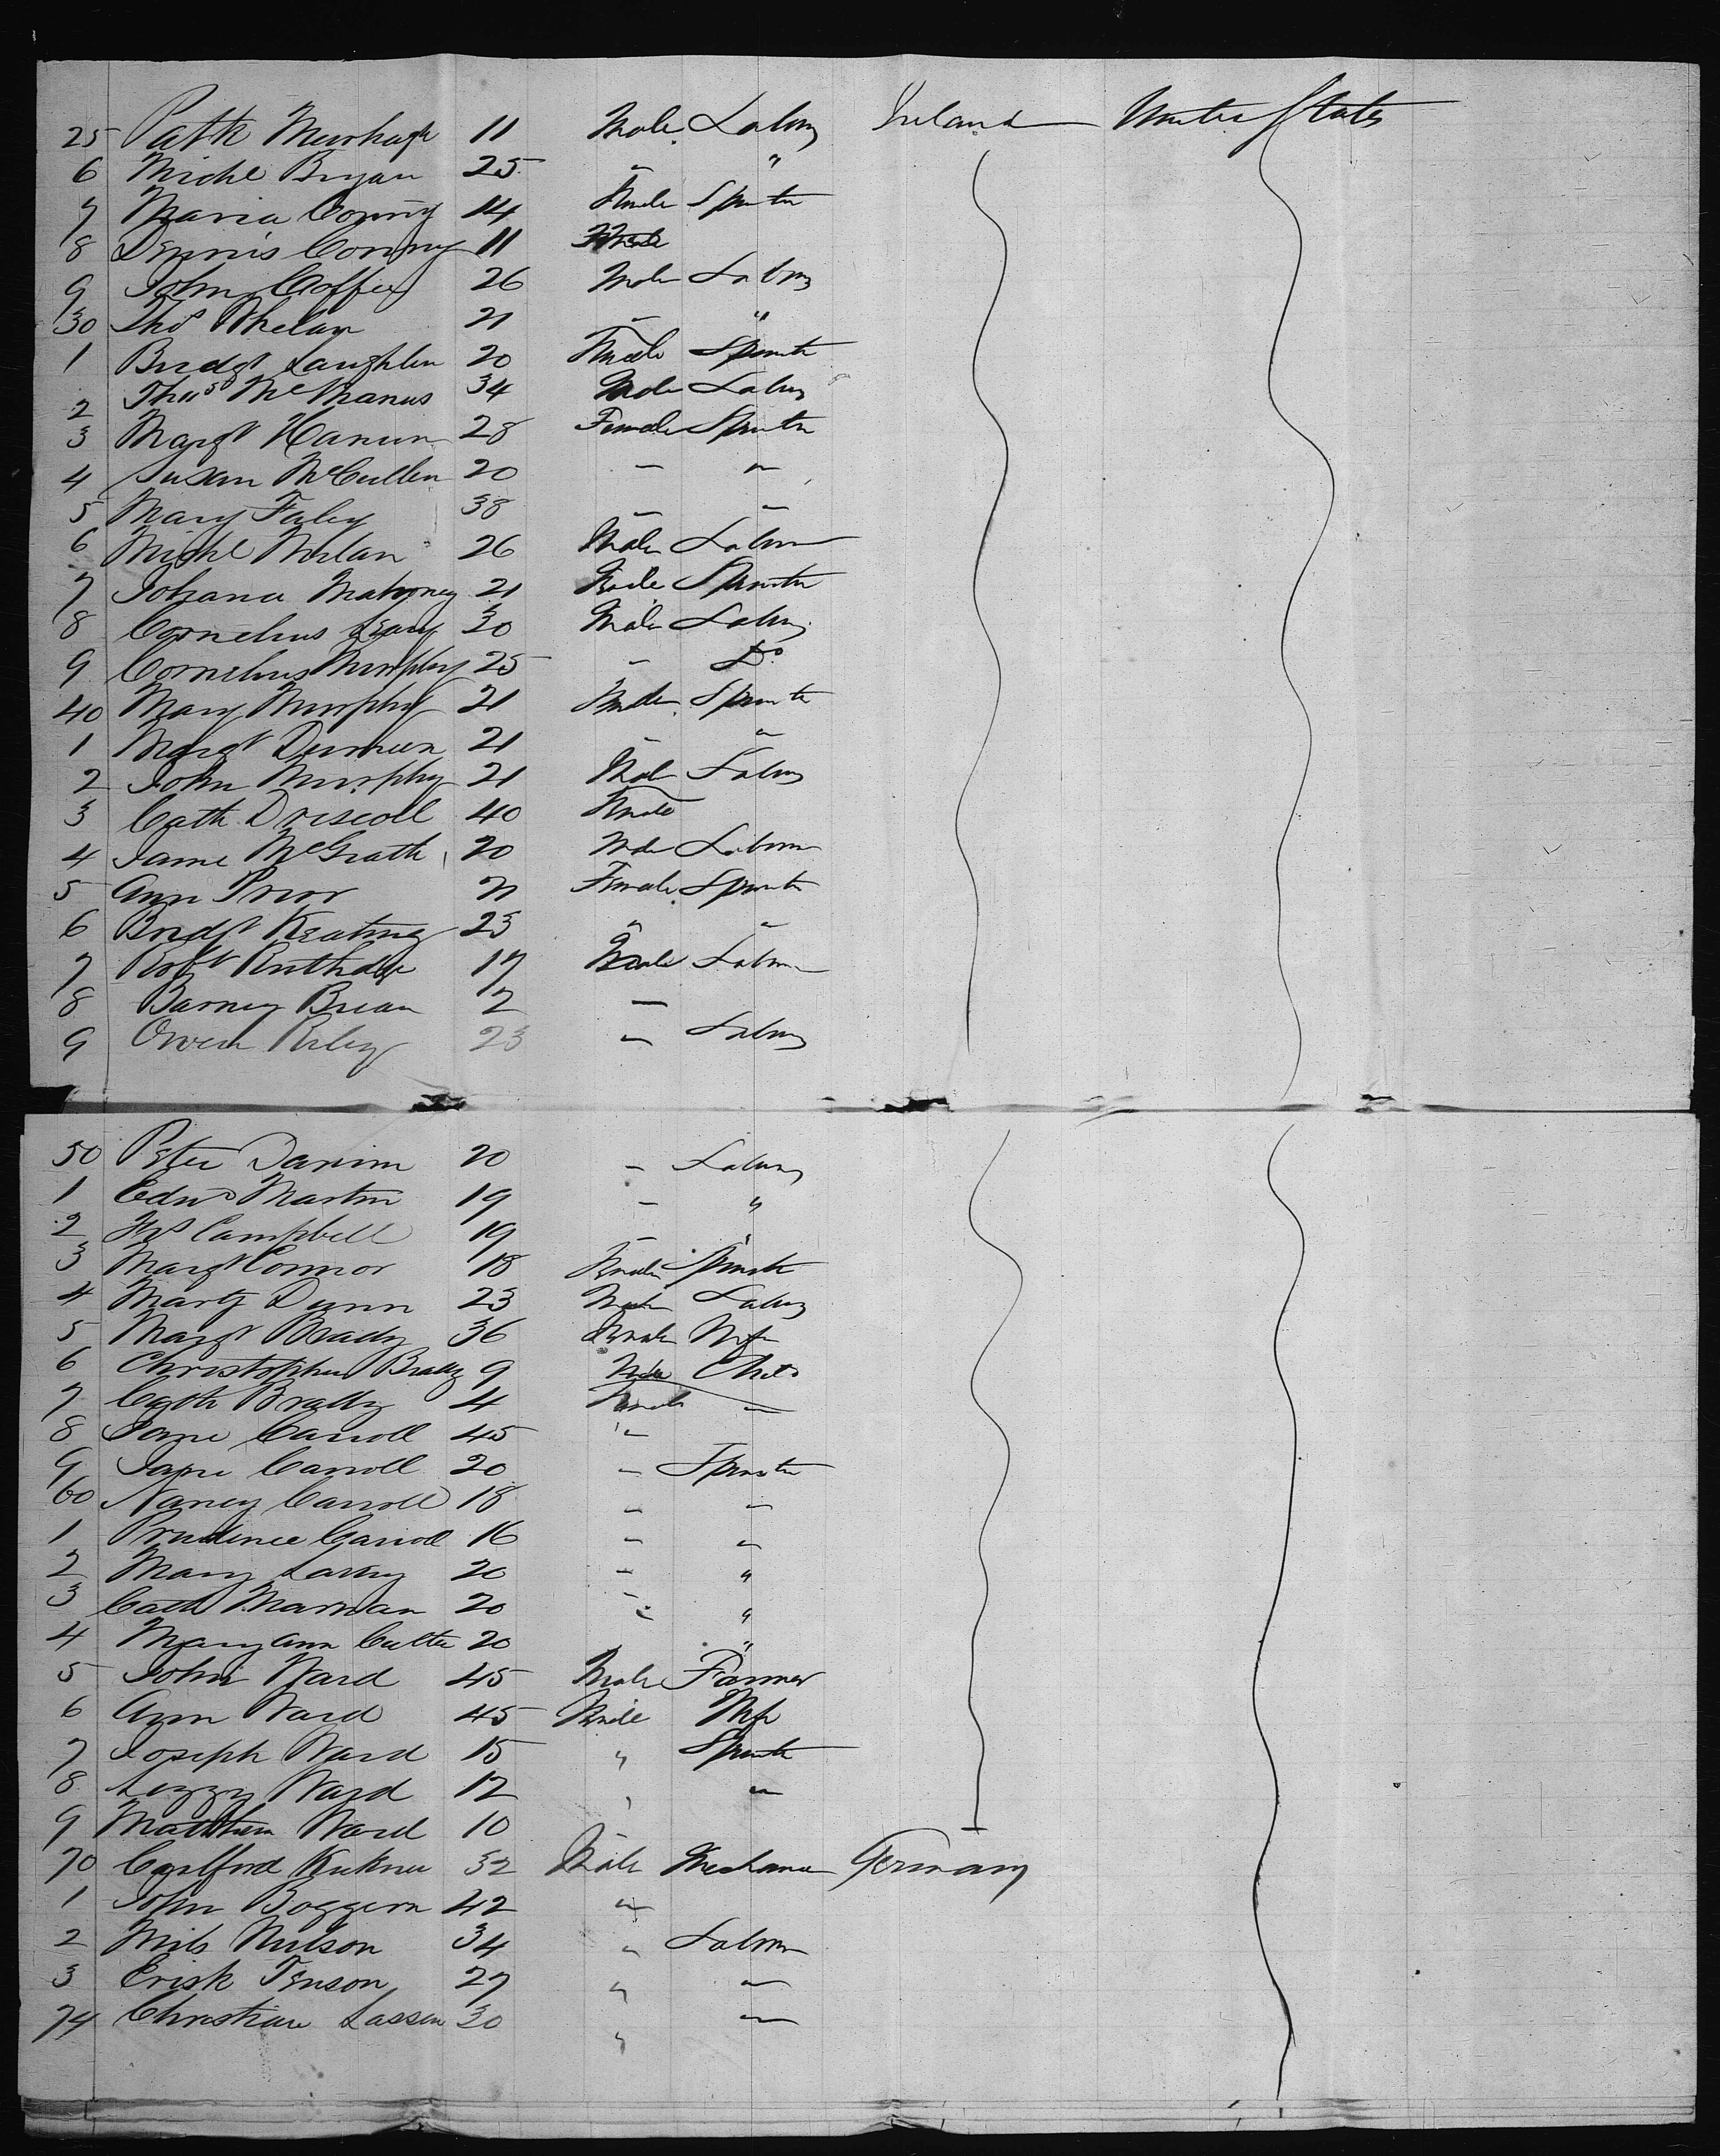 25 Patk Murhagh 11 Male Labor Ireland United States
6 Michl Bryan 25 " "
7 Maria Conny 14 Female Spinster
8 Dennis Conny 11 Male
9 John Coffey 26 Male Labor
30 Thos Whelan 21 " "
1 Bridgt Laughlin 20 Female Spinster
2 Thos McManus 34 Male Labor
3 Margt Hanun 28 Female Spinster
4 Susan McCullen 20 " "
5 Mary Faley 38 " "
6 Michl Nolan 26 Male Labor
7 Johana Mahoney 21 Female Spinster
8 Cornelius Leary 30 Male Labor
9 Cornelius Murphy 25 " Do
40 Mary Murphy 21 Female Spinster
1 Margt Dunneen 21 " "
2 John Murphy 21 Male Labor
3 Cath Driscoll 40 Female
4 Jame McGrath 20 Male Labor
5 Ann Prior 21 Female Spinster
6 Bridgt Keating 23 " "
7 Robt 17 Male Labor
8 Barney Brean 2 "
9 Owen Riley 23 " Labor
50 Peter 20 " Labor
1 Edwd Martin 19 " "
2 Campbell 19 " "
3 Margt Connor 18 Female Spinster
4 Marty Dunn 23 Male Labor
5 Margt Brady 36 Female Wife
6 Christopher Brady 9 Male Child
7 Cath Brady 4 Female "
8 Jane Carroll 45 "
9 Jane Carroll 20 " Spinster
60 Nancy Carroll 18 " "
1 Prudence Carroll 16 " "
2 Mary 20 " "
3 Cath Marnan 20 " "
4 Mary Ann Culter 20 "
5 John Ward 45 Male Farmer
6 Ann Ward 45 Female Wife
7 Joseph Ward 15 " Spinster
8 Lizzy Ward 12 " "
9 Matthew Ward 10
70 Carlford 32 Male Mechanic Germany
1 John Boggern 42 "
2 Nils Nilson 34 " Labor
3 Erisk Tenson 27 " "
74 Christian Lassen 30 " "